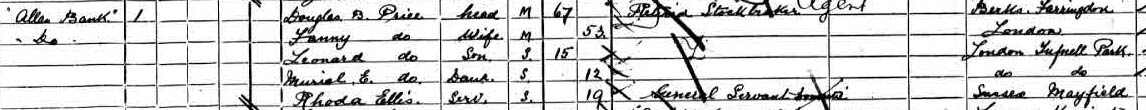 "Allen Bank" 1 Douglas B. Price head M 67 Retired Stockbroker Agent Berks. Farringdon
" Do Fanny do Wife M 53 London
Leonard do Son. S. 15 London Tufnell Park
Muriel E. do. Daur. S. 12 do do
Rhoda Ellis. Serv. S. 19 General Servant Sussex Mayfield